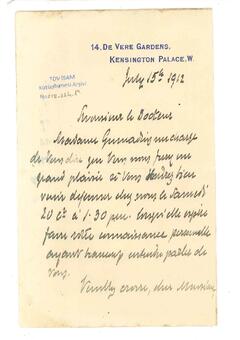 14, DE VERE GARDENS,
KENSINGTON PALACE, W.
TDV İSAM
Kütüphanesi Arşivi
No
July 15th 1912
Monsieur le Docteur
Madame me charge
de Vous dire que Vous nous ferez un
grand plaisir si Vous Voudrez bien
venir déjeuner chez nous le Samedi
20 ct à 1.30 p.m. lorsqu'elle espère
faire votre connaissance personnelle
ayant beaucoup entendu parler de
Vous.
Veuillez croire, cher Monsieur,